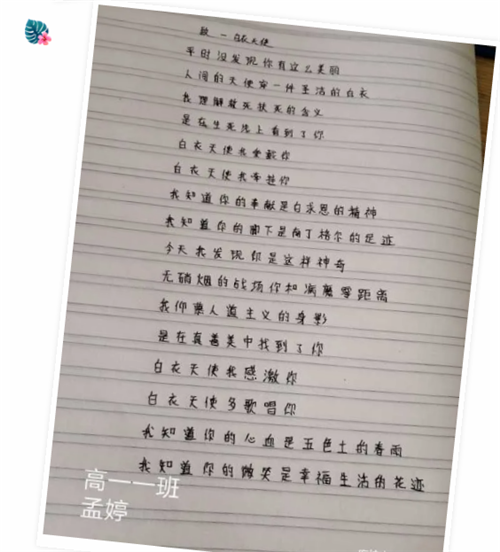 致一白衣天使
平时没发现你有这么美丽
人间的天使穿一件圣洁的白衣
我理解救死扶死的含义
是在生死线上看到了你
白衣天使我爱戴你
白衣天使我牵挂你
我知道你的奉献是白求恩的精神
我知道你的脚下是南丁格尔的足迹
今天我发现却是这样神奇
无硝烟的战场你和病魔零距离
我仰慕人道主义的身影
是在真善美中找到了你
白衣天使我感激你
白衣天使多歌唱你
我知道你的心血是五色土的春雨
我知道你的微笑是幸福生活的花迹
高一一班
孟婷